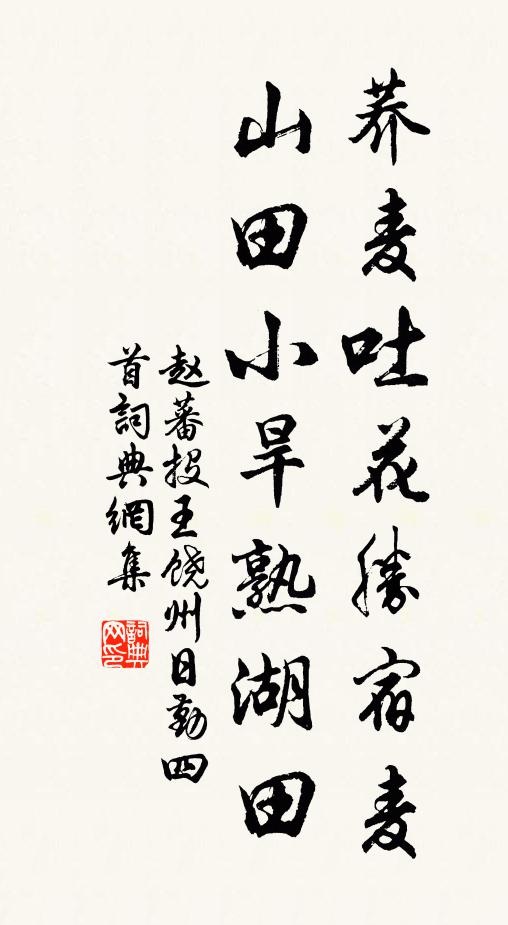 荞麦吐花勝宿麦
山田小旱熟湖田
赵蕃投王饶州日勤四
首詞典網集
詞典
网印